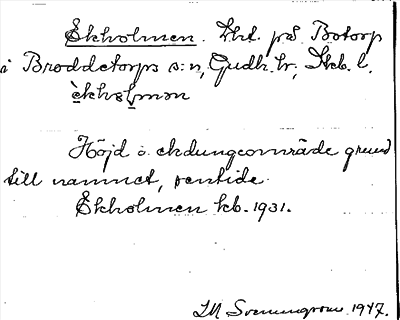 Ekholmen. Lht. på Botorp
i Broddetorps s:n, Gudh. hr, Skb. l.
èkhɷlmən
Höjd o. ekdungeområde grund
till namnet, samtida.
Ekholmen kb. 1931.
IM Svenungsson 1947.